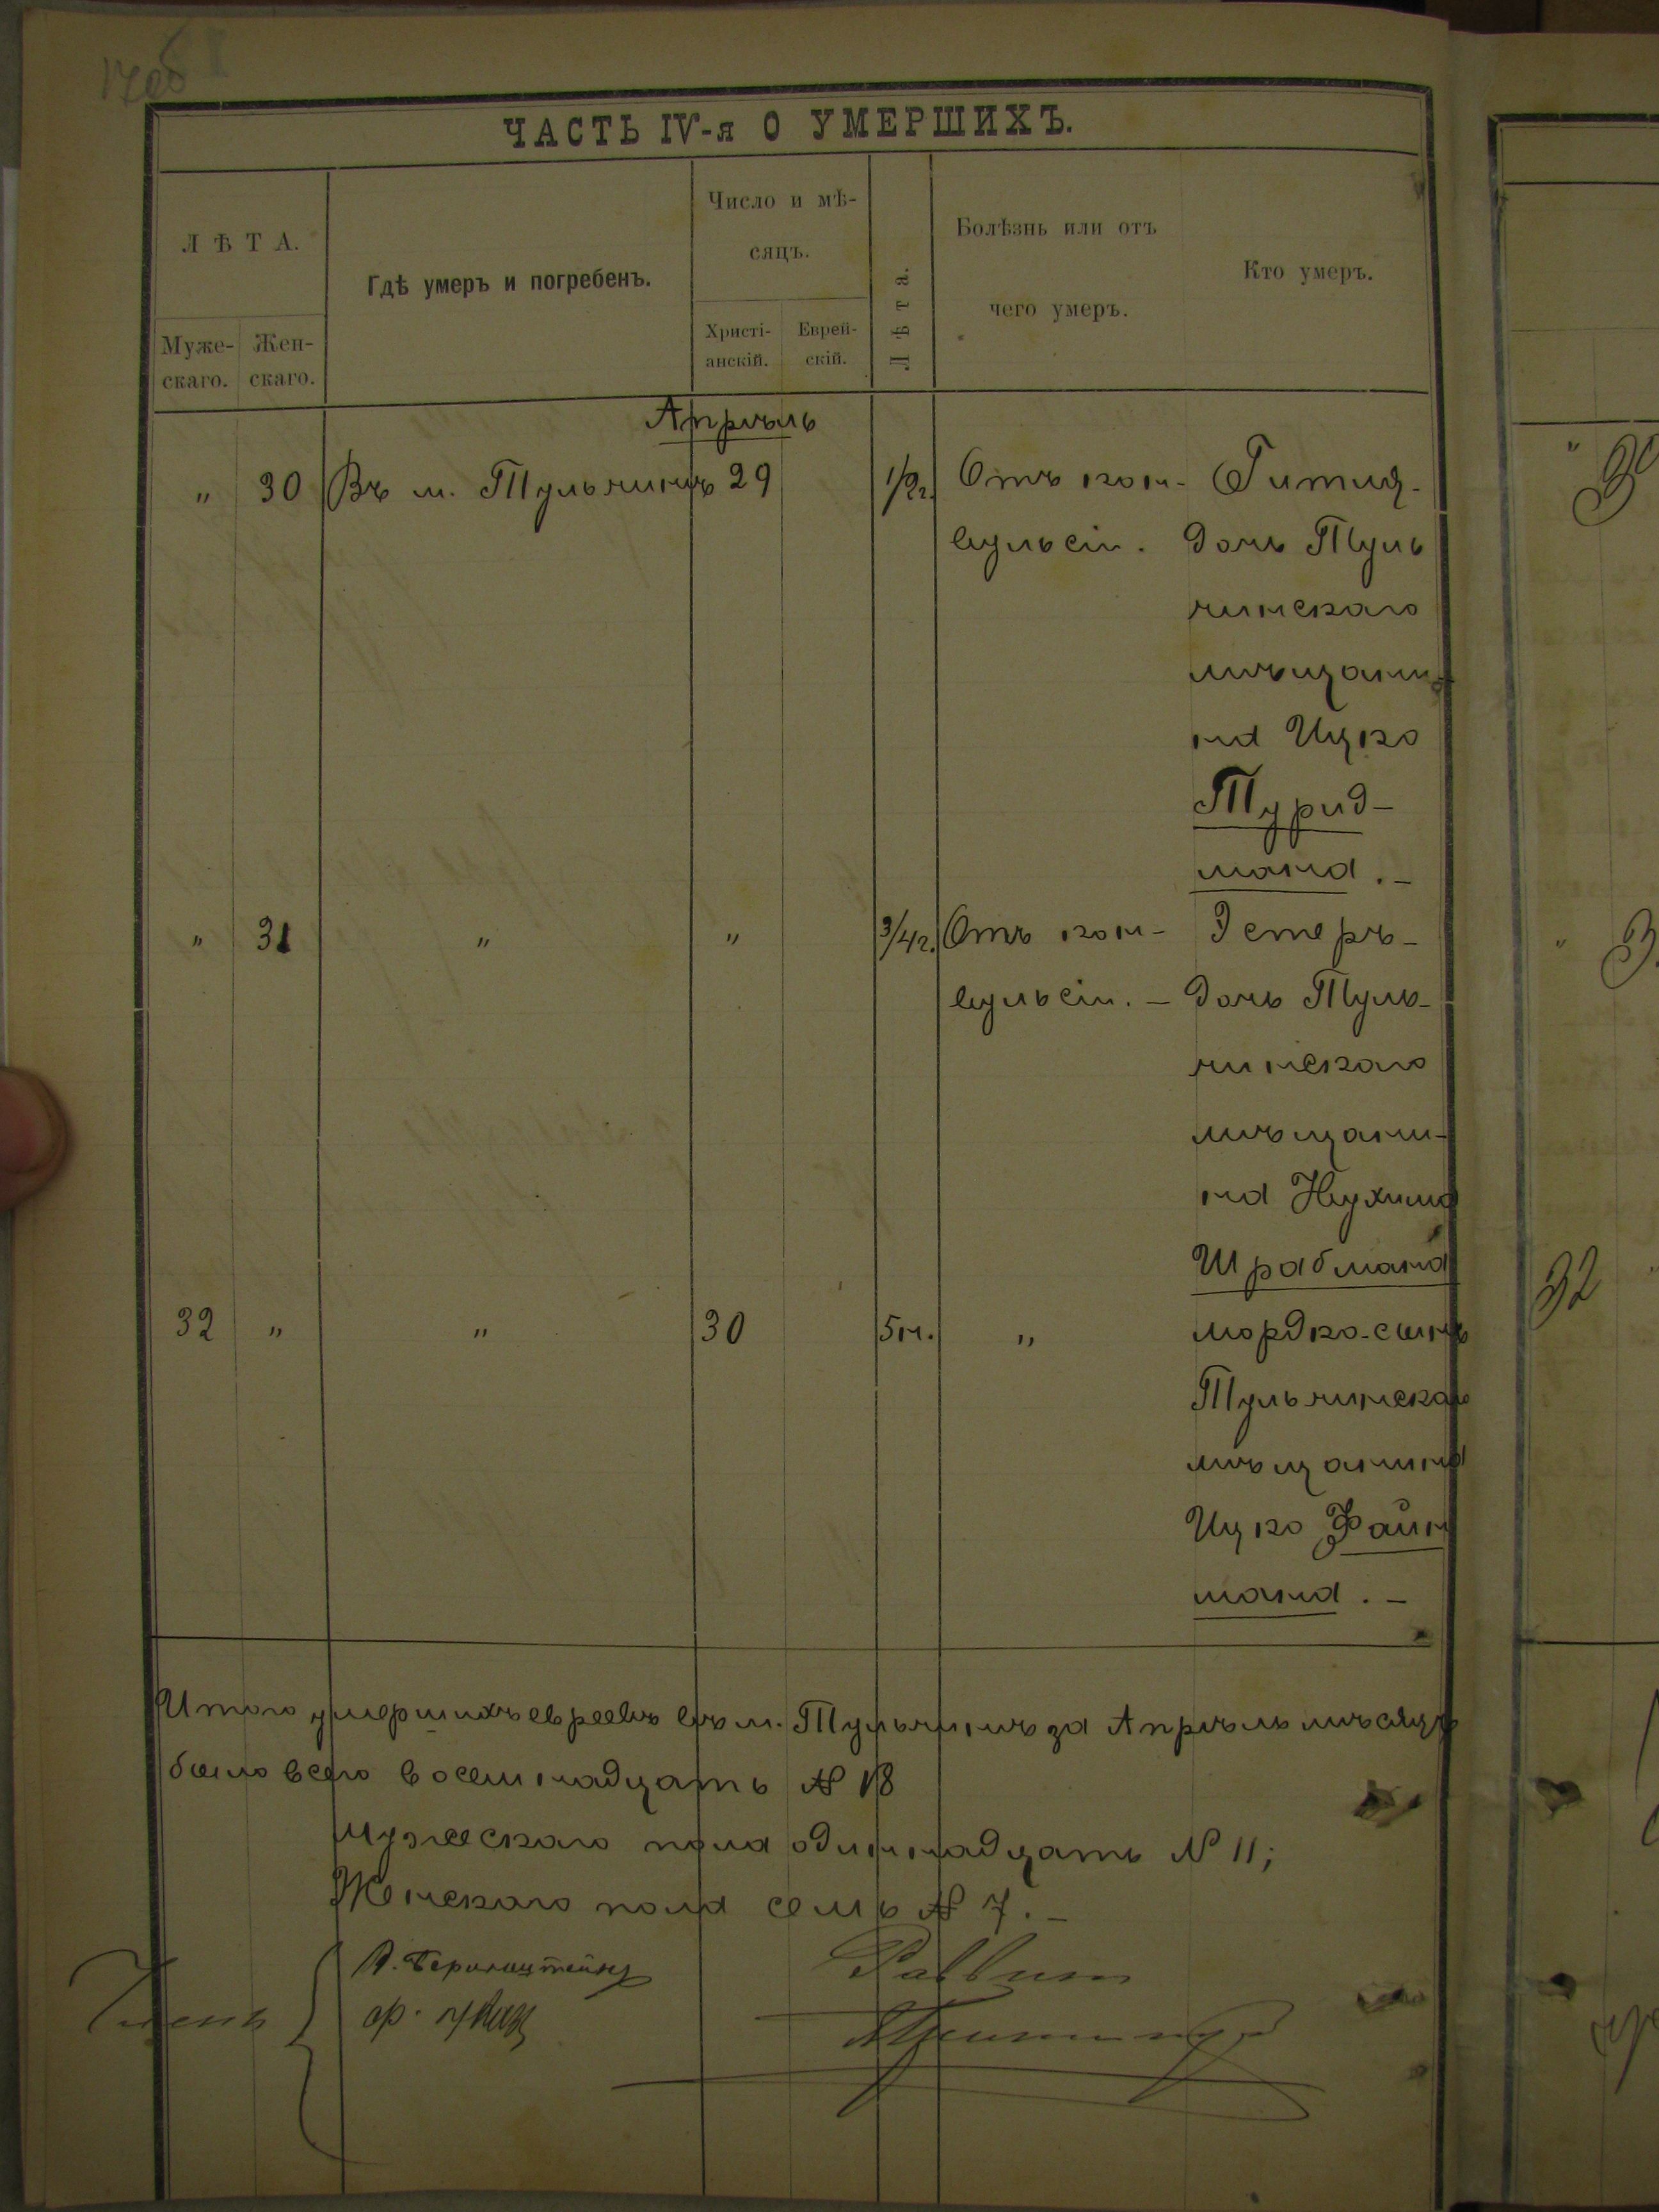 ЧАСТЬ IV-я О УМЕРШИХЪ.
ЛѢТА.
Муже-
скаго.
Жен-
скаго.
Гдѣ умеръ и погребенъ.
Число и мѣ-
сяцъ.
Христі-
анскій.
Еврей-
скій.
Лѣта.
Болѣзнь или отъ
чего умеръ.
Кто умеръ.
Апрѣль
" 30 Въ м. Тульчинѣ 29 1/2 г. Отъ кон- Гитля-
вульсіи. дочь Туль
чинскаго
мѣщани-
на Ицко
Турид-
мана.-
" 31 " " 3/4 г. Отъ кон- Эстеръ-
вульсіи.- дочь Туль-
чинскаго
мѣщани-
на Нухима
Шрабмана
32 " " 30 5 м. " Мордко-сынъ
Тульчинскаго
мѣщанина
Ицко Файн
мана.-
Итого умершихъ евреевъ въ м. Тульчинѣ за Апрѣль мѣсяцъ
было всего восемнадцать № 18
Мужескаго пола одиннадцать № 11;
Женскаго пола семь № 7.-
Раввин